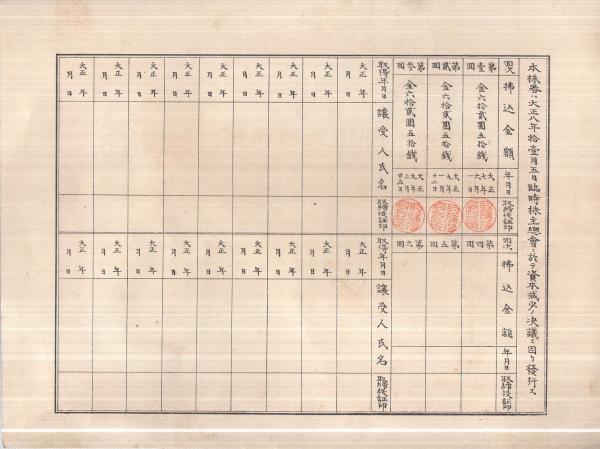 本株券ハ大正八年拾壹月五日臨時株主總會ニ於テ資本減少ノ決議ニ因リ發行ス
回次
拂込金額
年月日
取締役証印
第壹回
金六拾貳圓五拾錢
大正七年六月一日
第貳回
金六拾貳圓五拾錢
大正九年一月十二日
第參回
金六拾貳圓五拾錢
大正九年三月廿五日
取得年月日
讓受人氏名
取締役証印
大正 年 月 日
大正 年 月 日
大正 年 月 日
大正 年 月 日
大正 年 月 日
大正 年 月 日
大正 年 月 日
大正 年 月 日
回次
拂込金額
年月日
取締役証印
第四回
第五回
第六回
取得年月日
讓受人氏名
取締役証印
大正 年 月 日
大正 年 月 日
大正 年 月 日
大正 年 月 日
大正 年 月 日
大正 年 月 日
大正 年 月 日
大正 年 月 日